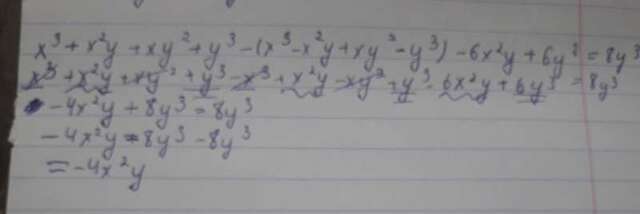 x³ + x²y + xy² + y³ - (x³ - x²y + xy² - y³) - 6x²y + 6y³ = 8y³
x³ + x²y + xy² + y³ - x³ + x²y - xy² + y³ - 6x²y + 6y³ = 8y³
-4x²y + 8y³ = 8y³
-4x²y = 8y³ - 8y³
= -4x²y